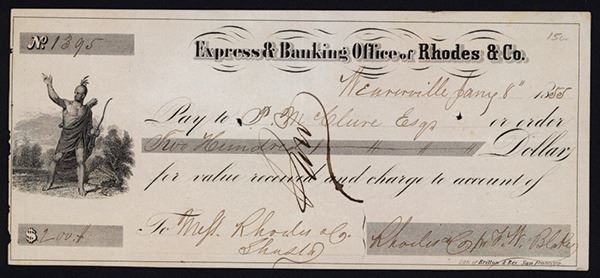 No. 1395
150-
Express & Banking Office of Rhodes & Co.
Weaverville Jany 8" 1855
Pay to P. M. Clure Esqr or order
Two Hundred " " " " Dollars,
for value received and charge to account of
To Messrs. Rhodes & Co.
Shasta
Rhodes & Co. pr F. W. Blake
$200.#
Lith. of Britton & Rey, San Francisco